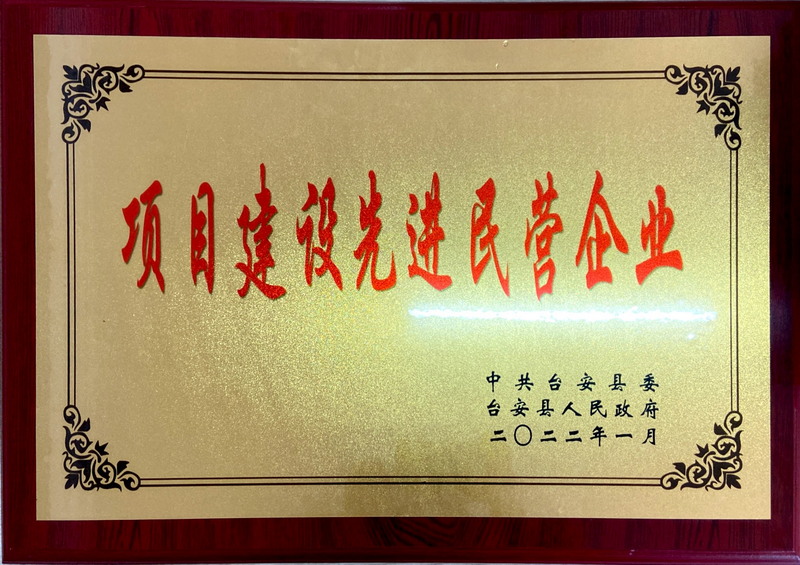 项目建设先进民营企业
中共台安县委
台安县人民政府
二〇二二年一月